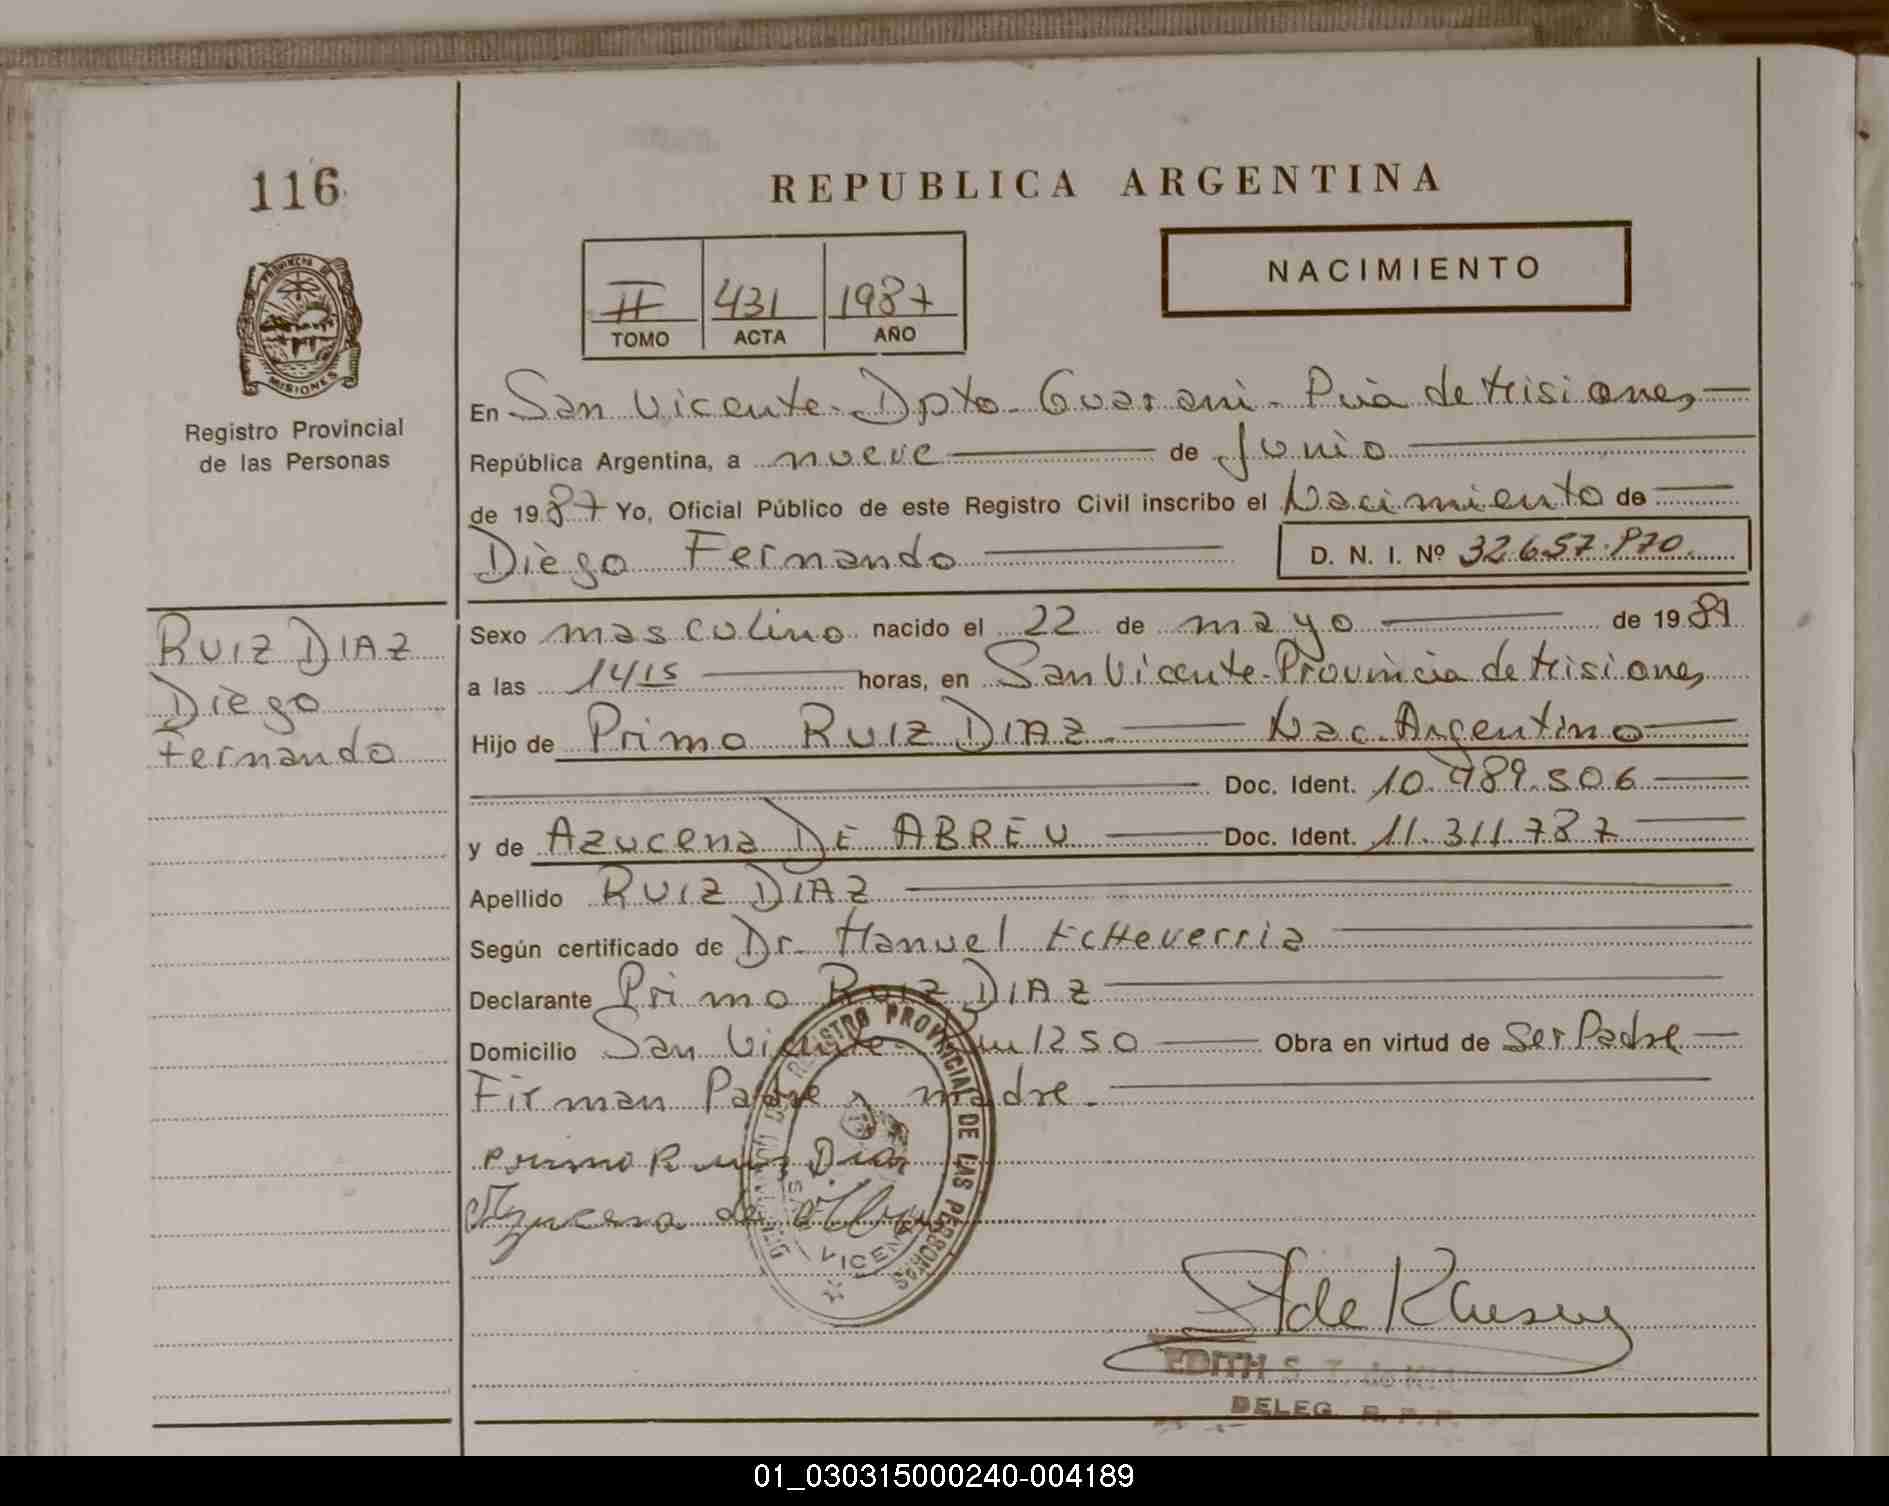 116
REPUBLICA ARGENTINA
NACIMIENTO
II 431 1987
TOMO ACTA AÑO
PROVINCIA DE
MISIONES
Registro Provincial
de las Personas
En San Vicente - Dpto - Guarani - Pcia de Misiones
República Argentina, a nueve de Junio
de 1987 Yo, Oficial Público de este Registro Civil inscribo el Nacimiento de
Diego Fernando D. N. I. Nº 32.657.870
RUIZ DIAZ
Diego
Fernando
Sexo masculino nacido el 22 de mayo de 19
a las 14 15 horas, en San Vicente - Provincia de Misiones
Hijo de Primo RUIZ DIAZ - Nac. Argentino
Doc. Ident. 10.789.506
y de Azucena DE ABREU Doc. Ident. 11.311.787
Apellido RUIZ DIAZ
Según certificado de Dr. Manuel Echeverria
Declarante Primo RUIZ DIAZ
Domicilio San Vicente Km 1250 Obra en virtud de Ser Padre
Firman Padre y madre -
Primo Ruiz Diaz
Azucena de Abreu
REGISTRO PROVINCIAL DE LAS PERSONAS
VICENTE
de
EDITH S. T.
DELEG. R. P. P.
01_030315000240-004189